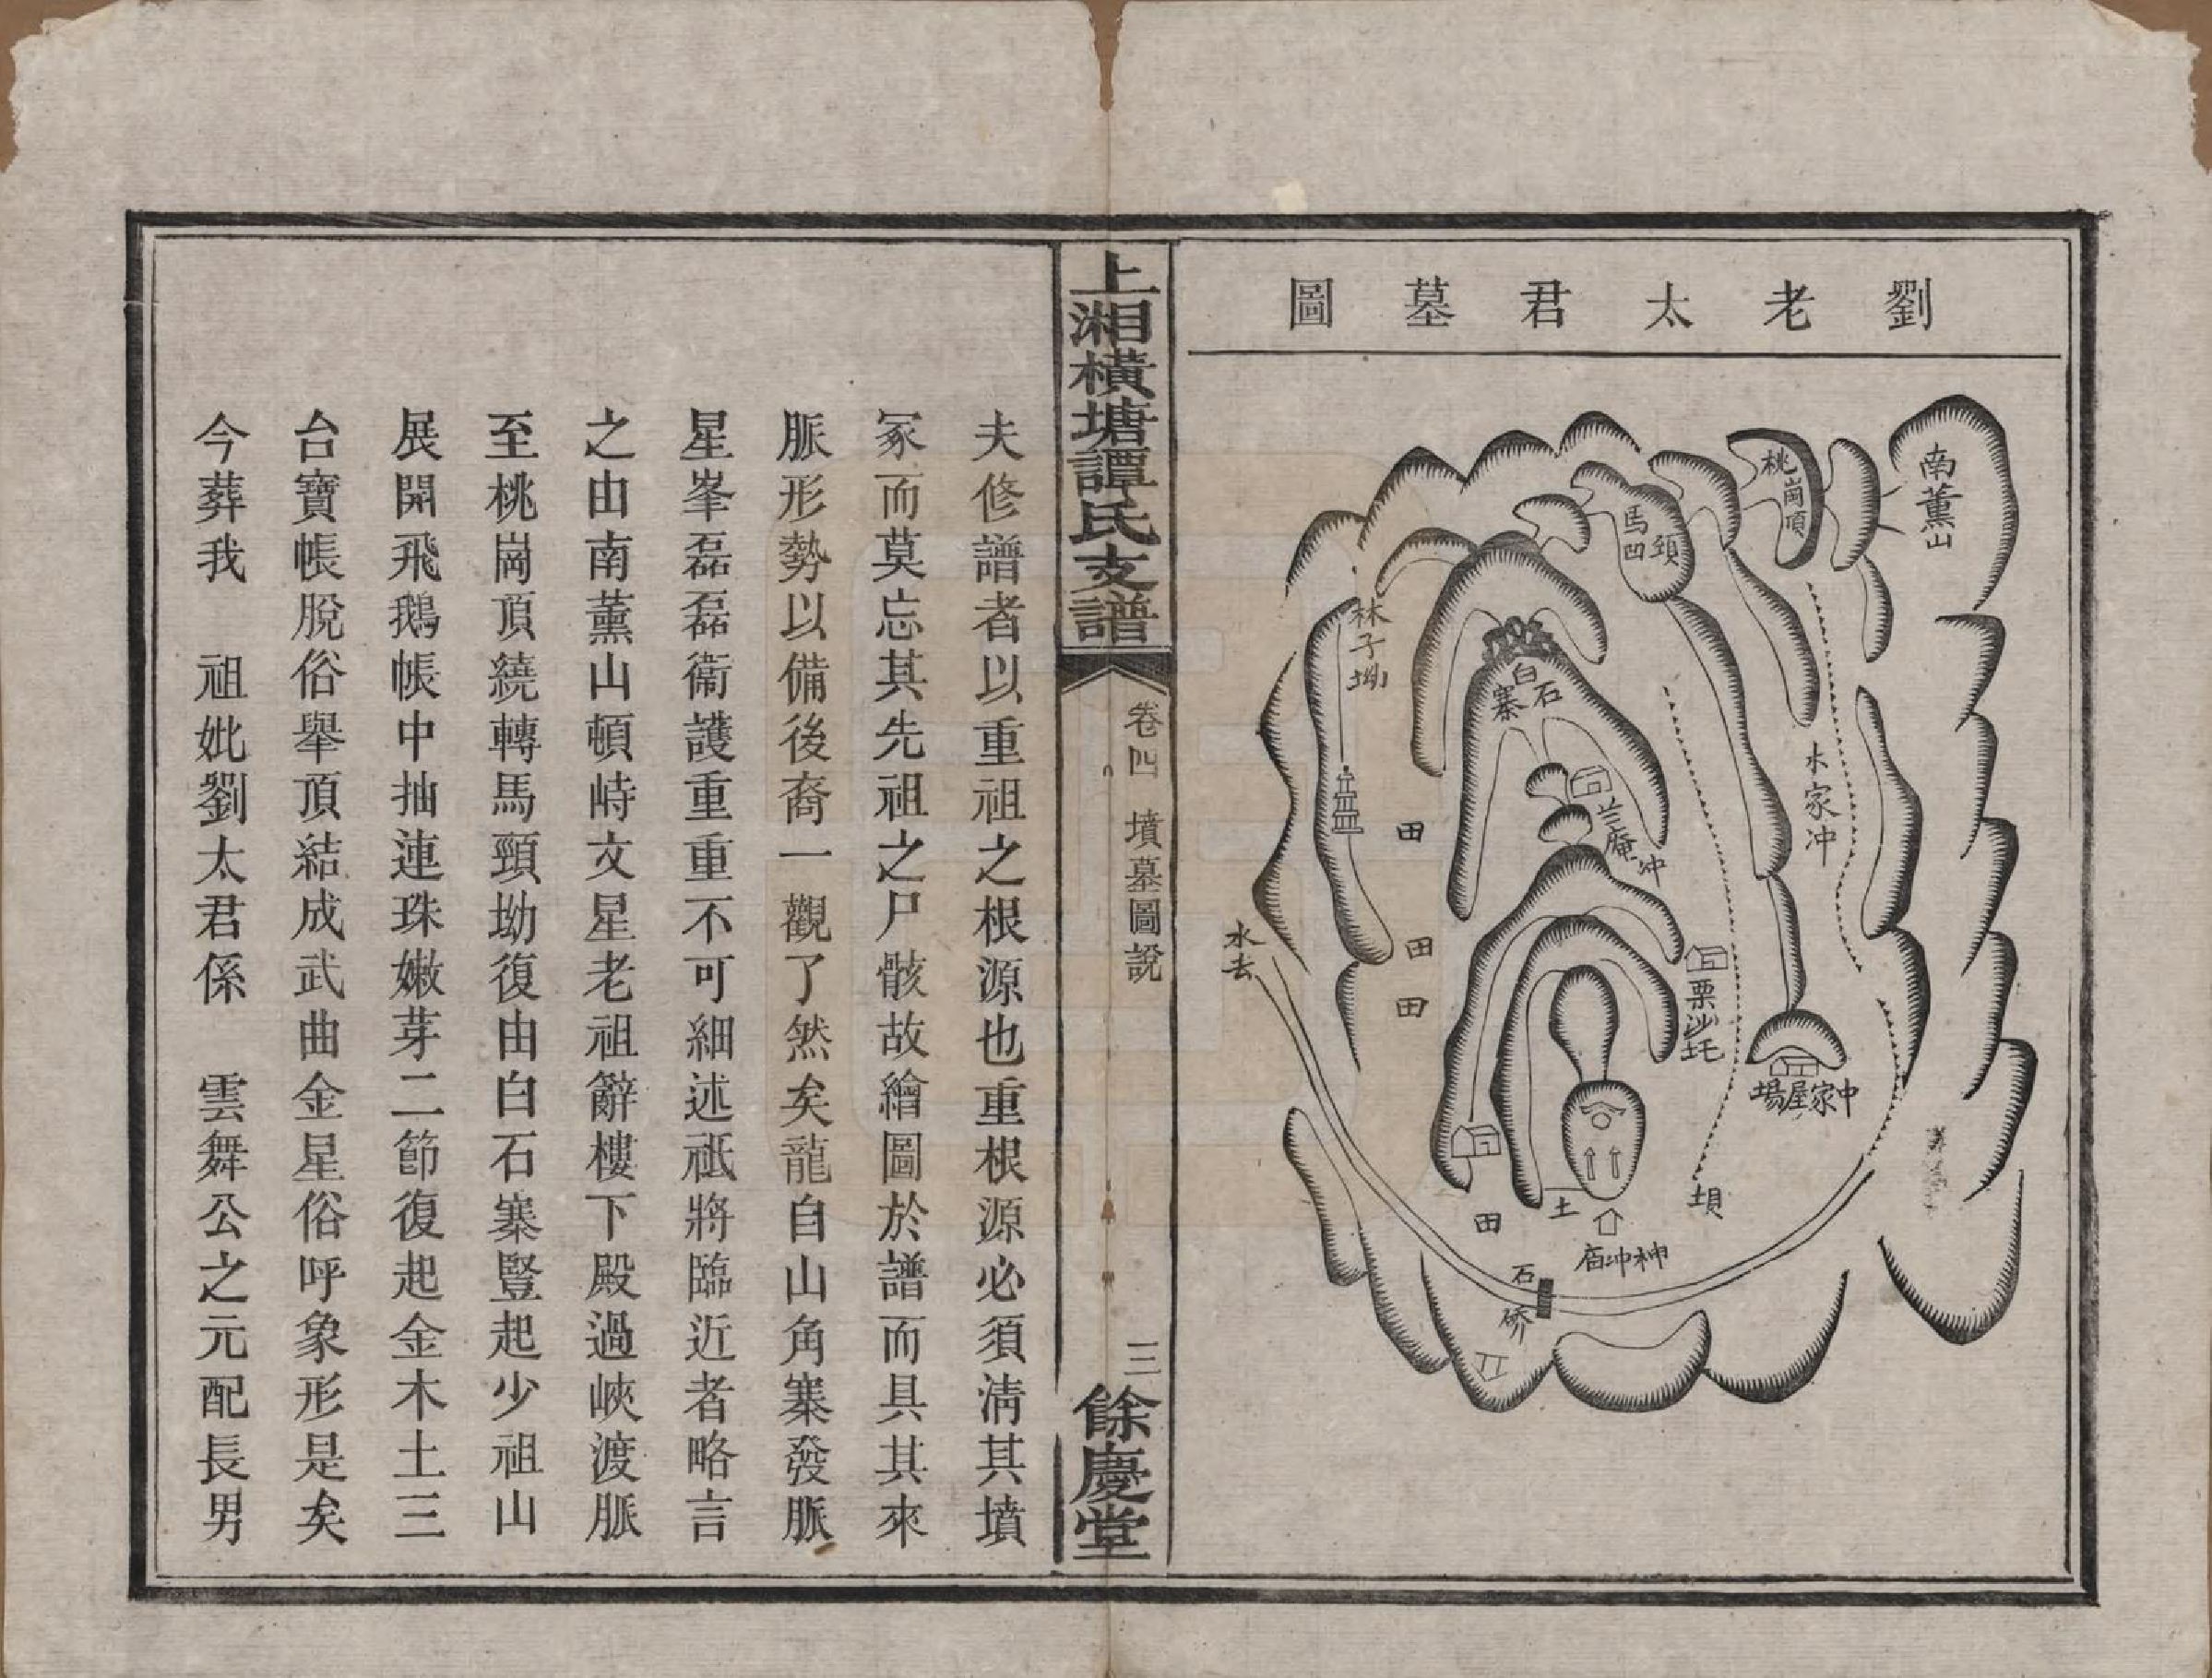 劉老太君墓圖
南薰山
桃崗頂
馬頸凹
林子坳
白石寨
兰庵冲
木家冲
田
田
田
水去
栗沙坨
中家屋場
垻
土
田
神冲庙
石硚
上湘橫塘譚氏支譜
卷四
墳墓圖說
三
餘慶堂
夫修譜者以重祖之根源也重根源必須清其墳
冢而莫忘其先祖之尸骸故繪圖於譜而具其來
脈形勢以備後裔一觀了然矣龍自山角寨發脈
星峯磊磊衞護重重不可細述祗將臨近者略言
之由南薰山頓峙文星老祖辭樓下殿過峽渡脈
至桃崗頂繞轉馬頸坳復由白石寨豎起少祖山
展開飛鵝帳中抽連珠嫩芽二節復起金木土三
台寶帳脫俗舉頂結成武曲金星俗呼象形是矣
今葬我　祖妣劉太君係　雲舞公之元配長男